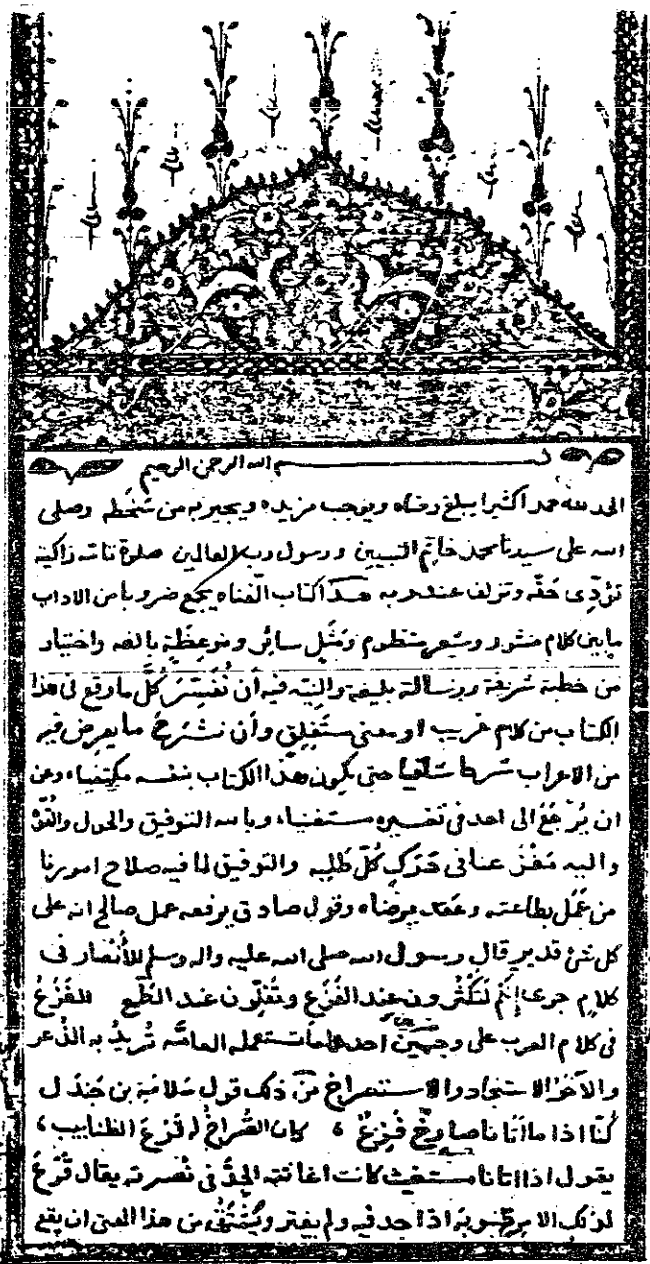 بسم الله الرحمن الرحيم
الحمد لله حمدا كثيرا يبلغ رضاه ويوجب مزيده ويجير به من سخطه وصلى
الله على سيدنا محمد خاتم النبيين ورسول رب العالمين صلوة تامة زاكية
تؤدى حقه وتزلف عند ربه هذا كتاب الفناه يجمع ضروبا من الاداب
ما بين كلام منثور وشعر منظوم ومثل سائر وموعظة بالغه واختيار
من خطبة شريفة ورسالة بليغة والنية فيه أن نفسر كل ما وقع فى هذا
الكتاب من كلام غريب او معنى مستغلق وأن نشرح ما يعرض فيه
من الاعراب شرحا شافيا حتى يكون هذا الكتاب بنفسه مكتفيا، وعن
ان يرجع الى احد فى تفسيره مستغنيا، وبالله التوفيق والحول والقوة
واليه مفزعنا فى درك كل طلبه والتوفيق لما فيه صلاح امورنا
من عمل بطاعته وعقد برضاه وقول صادق يرفعه عمل صالح انه على
كل شئ قدير قال رسول الله صلى الله عليه واله وسلم للأنصار فى
كلام جرى إنكم لتكثرون عند الفزع وتقلون عند الطمع الفزع
فى كلام العرب على وجهين احدهما ما تستعمله العامة تريد به الذعر
والآخر الاستنجاد والاستصراخ من ذلك قول سلامة بن جندل
كنا اذا ما أتانا صارخ فزع ، كان الصراخ له قرع الظنابيب ،
يقول اذا اتانا مستغيث كانت اغاثته الجد فى نصرته يقال قرع
لذلك الامر ظنبوبه اذا جد فيه ولم يفتر ويشتق من هذا المعنى ان يقع